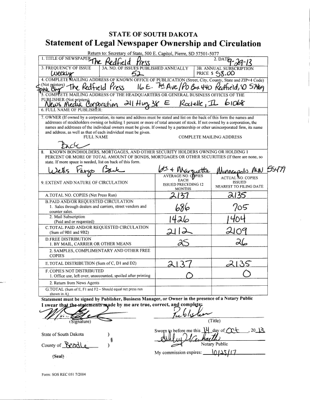 STATE OF SOUTH DAKOTA
Statement of Legal Newspaper Ownership and Circulation
Return to: Secretary of State, 500 E. Capitol, Pierre, SD 57501-5077
1. TITLE OF NEWSPAPER The Redfield Press 2. DATE 9-24-13
3. FREQUENCY OF ISSUE weekly 3A. NO. OF ISSUES PUBLISHED ANNUALLY 52 3B. ANNUAL SUBSCRIPTION PRICE $ 58.00
4. COMPLETE MAILING ADDRESS OF KNOWN OFFICE OF PUBLICATION (Street, City, County, State and ZIP+4 Code)
(Not printer) The Redfield Press 16 E. 7th Ave / PO Box 440 Redfield, SD 57469
5. COMPLETE MAILING ADDRESS OF THE HEADQUARTERS OR GENERAL BUSINESS OFFICES OF THE
PUBLISHER (Not printer)
News Media Corporation 211 Hwy 38 E Rochelle, IL 61068
6. FULL NAMES
7. OWNER (If owned by a corporation, its name and address must be stated and list on the back of this form the names and
addresses of stockholders owning or holding 1 percent or more of total amount of stock. If not owned by a corporation, the
names and addresses of the individual owners must be given. If owned by a partnership or other unincorporated firm, its name
and address, as well as that of each individual must be given.
FULL NAME COMPLETE MAILING ADDRESS
Back
8. KNOWN BONDHOLDERS, MORTGAGES, AND OTHER SECURITY HOLDERS OWNING OR HOLDING 1
PERCENT OR MORE OF TOTAL AMOUNT OF BONDS, MORTGAGES OR OTHER SECURITIES (If there are none, so
state. If more space is needed, list on back of this form).
Wells Fargo Bank 6th + Marquette Minneapolis MN 55479
9. EXTENT AND NATURE OF CIRCULATION
AVERAGE NO. COPIES EACH ISSUED PRECEDING 12 MONTHS
ACTUAL NO. COPIES ISSUED NEAREST TO FILING DATE
A. TOTAL NO. COPIES (Net Press Run) 2137 2135
B. PAID AND/OR REQUESTED CIRCULATION
1. Sales through dealers and carriers, street vendors and
counter sales. 686 705
2. Mail Subscription
(Paid and/or requested) 1426 1404
C. TOTAL PAID AND/OR REQUESTED CIRCULATION
(Sum of 9B1 and 9B2) 2112 2109
D. FREE DISTRIBUTION
1. BY MAIL, CARRIER OR OTHER MEANS 25 26
2. SAMPLES, COMPLIMENTARY AND OTHER FREE
COPIES
E. TOTAL DISTRIBUTION (Sum of C, D1 and D2) 2137 2135
F. COPIES NOT DISTRIBUTED
1. Office use, left over, unaccounted, spoiled after printing 0 0
2. Return from News Agents
G. TOTAL (Sum of E, F1 and F2 - Should equal net press run
shown in A)
Statement must be signed by Publisher, Business Manager, or Owner in the presence of a Notary Public
I swear that the statements made by me are true, correct, and complete.
Publisher
(Signature) (Title)
State of South Dakota )
County of Beadle )
(Seal)
Sworn to before me this 14 day of Oct , 20 13
Notary Public
My commission expires: 10/25/17
Form: SOS REC 051 7/2009